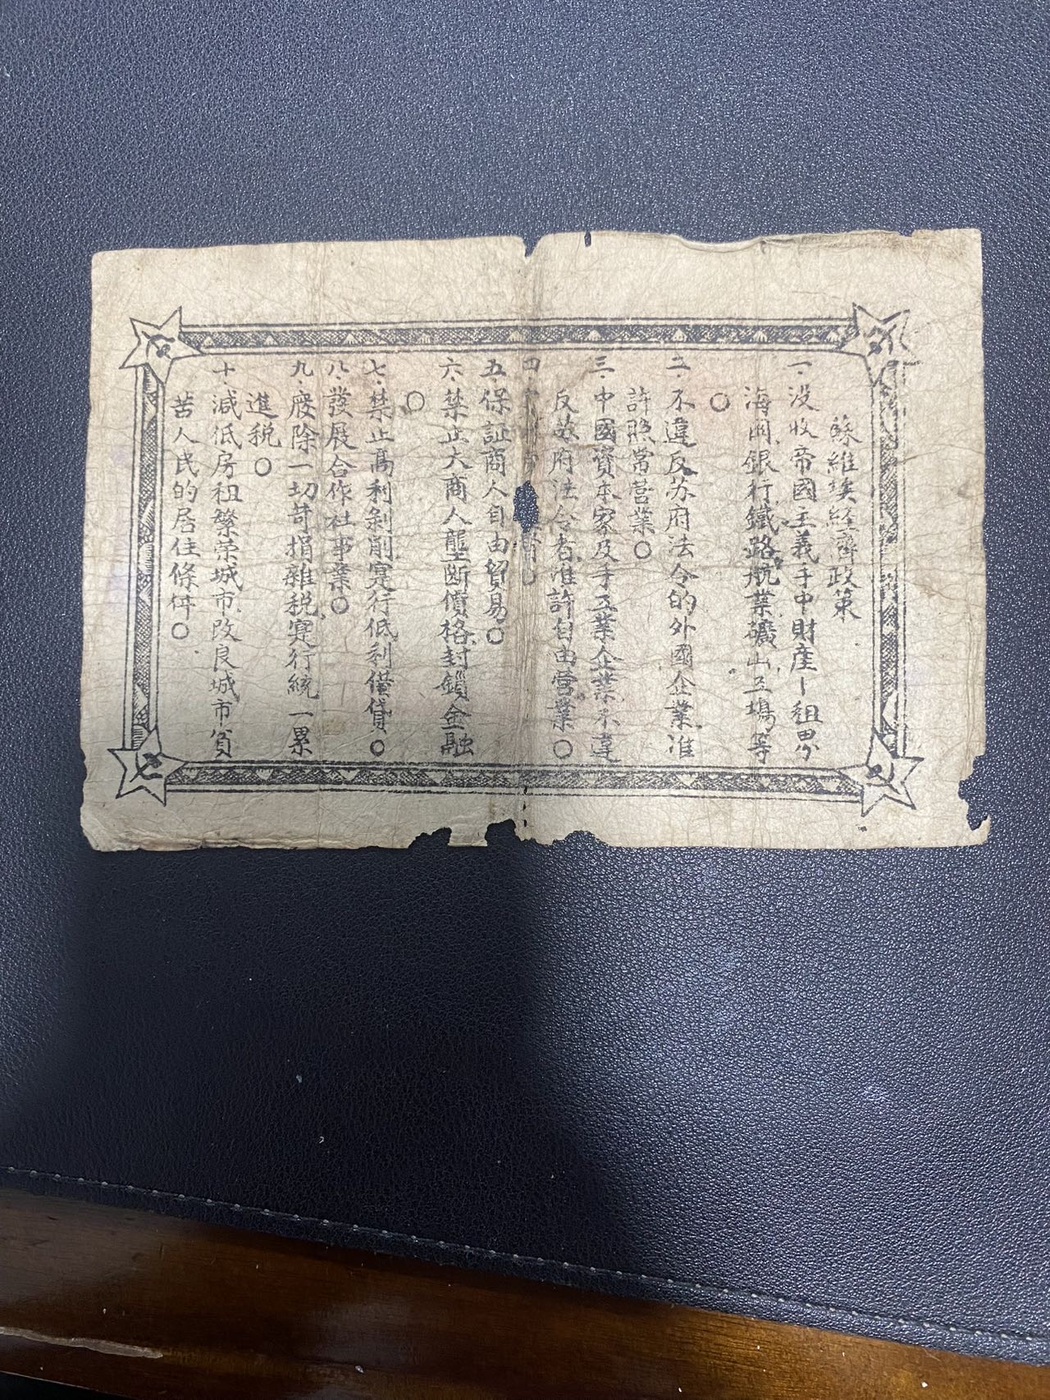 蘇維埃經濟政策
一、没收帝國主義手中財產—租界
海關銀行鐵路航業礦山工塲等
○
二、不違反苏府法令的外國企業准
許照常營業○
三、中國資本家及手工業企業不違
反苏府法令者准許自由營業○
四
五、保証商人自由貿易○
六、禁止大商人壟断價格封鎖金融
○
七、禁止高利剝削寔行低利借貸○
八、發展合作社事業○
九、廢除一切苛捐雜税寔行統一累
進税○
十、減低房租繁荣城市改良城市貧
苦人民的居住條件○